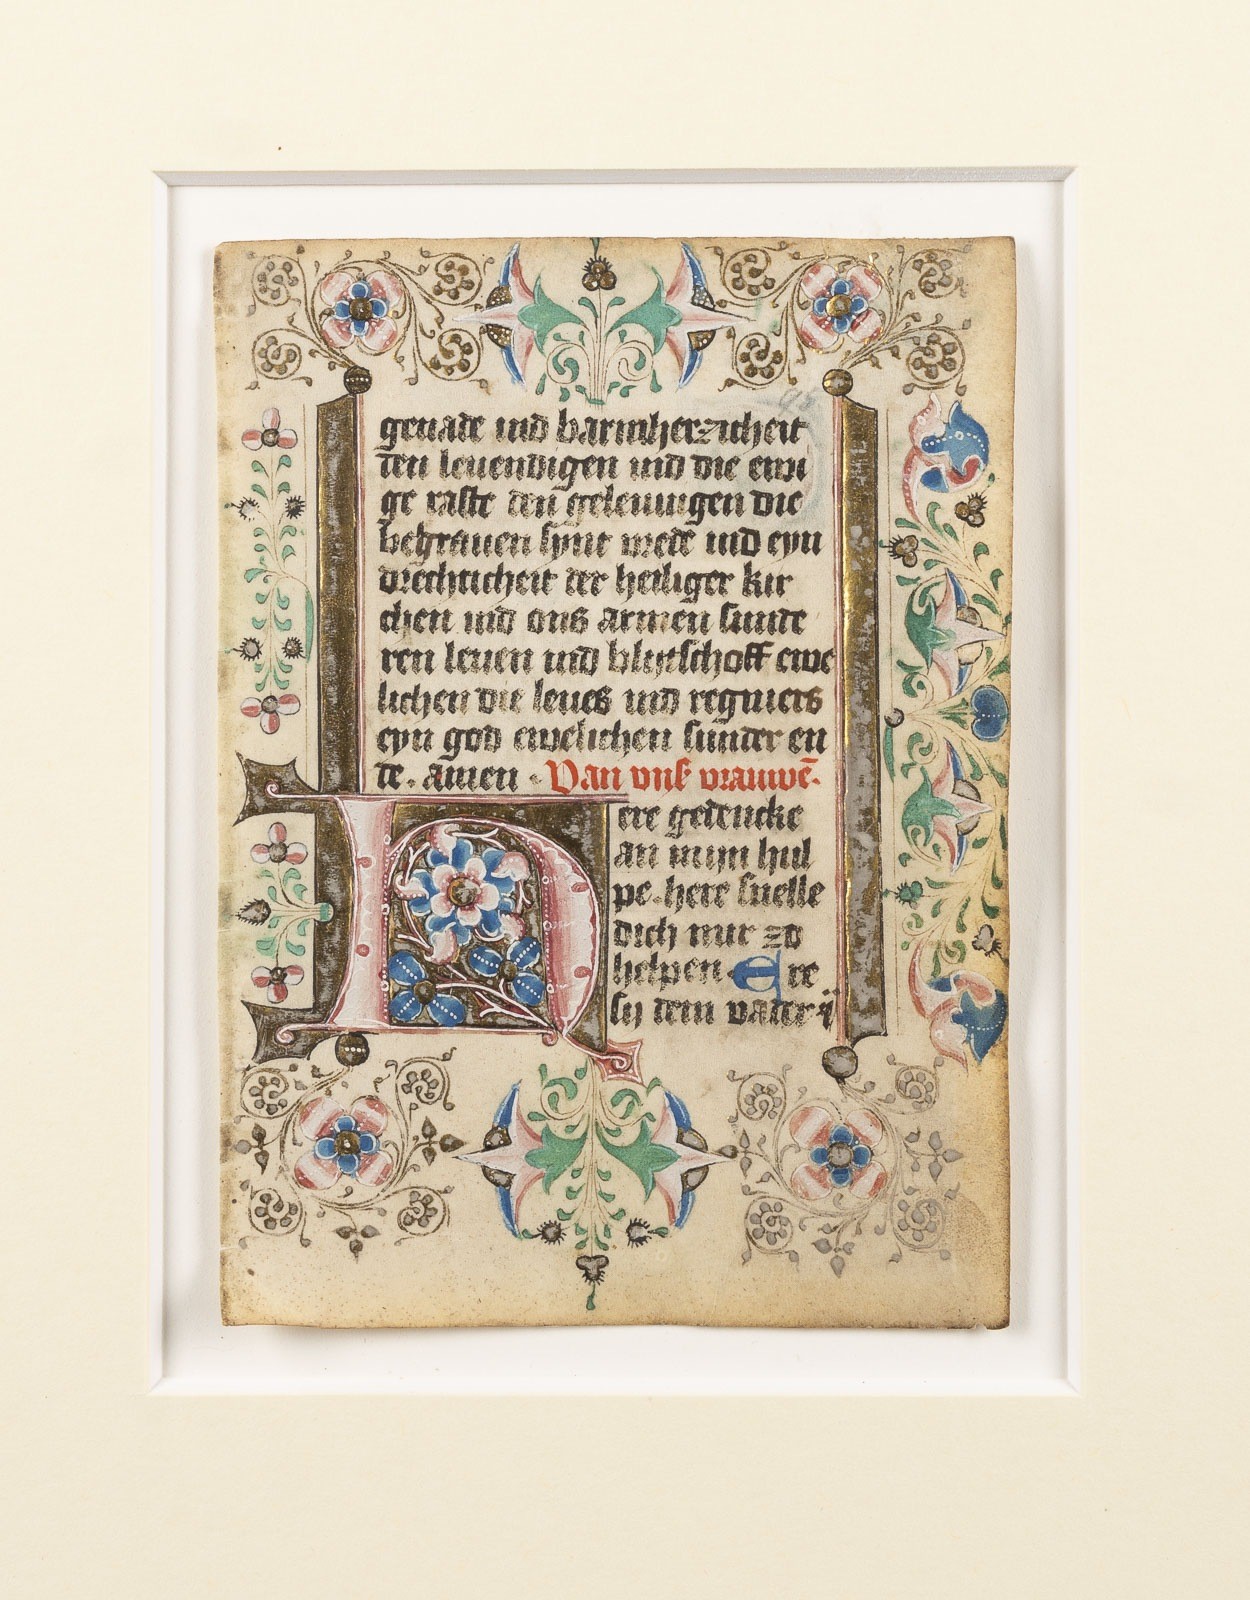 genade ind barmherzicheit
den leuendigen ind die ewi
ge raste den geleuuigen die
begrauen synt vrede ind eyn
drechticheit der heiliger kir
chen ind ons armen sunde
ren leuen ind blijtschoff ewe
lichen die leues ind regniers
eyn god ewelichen sunder en
de. amen. Van vnse vrauwē.
Here gedencke
an mijn hul
pe. here snelle
dich mir zo
helpen. Ere
sij dem vader ꝫ